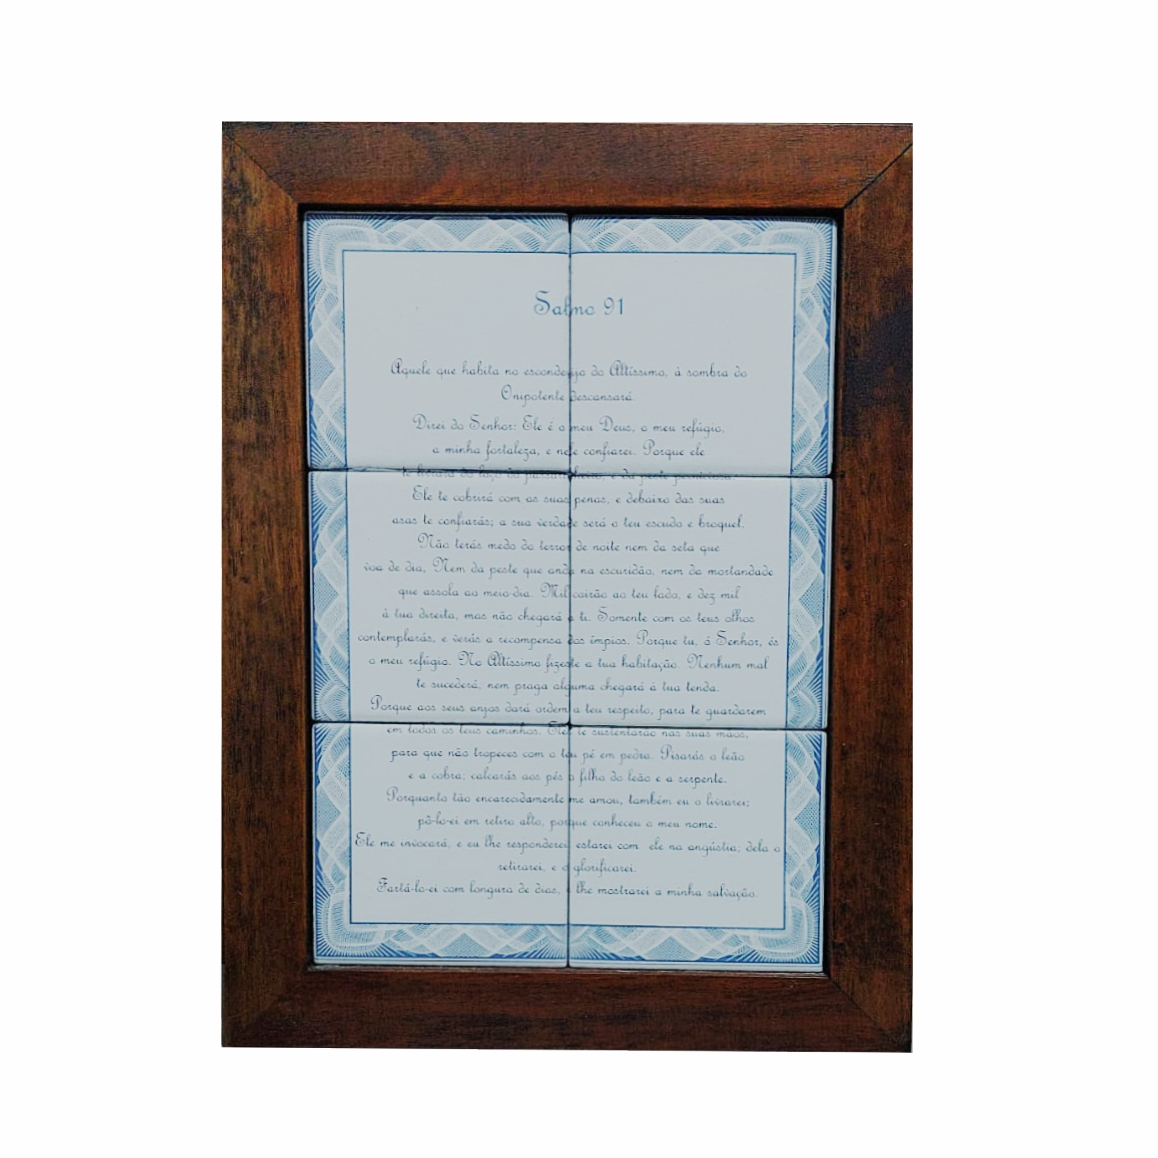 Salmo 91
Aquele que habita no esconderijo do Altíssimo, à sombra do
Onipotente descansará.
Direi do Senhor: Ele é o meu Deus, o meu refúgio,
a minha fortaleza, e nele confiarei. Porque ele
te livrará do laço do passarinheiro, e da peste perniciosa.
Ele te cobrirá com as suas penas, e debaixo das suas
asas te confiarás; a sua verdade será o teu escudo e broquel.
Não terás medo do terror de noite nem da seta que
voa de dia, Nem da peste que anda na escuridão, nem da mortandade
que assola ao meio-dia. Mil cairão ao teu lado, e dez mil
à tua direita, mas não chegará a ti. Somente com os teus olhos
contemplarás, e verás a recompensa dos ímpios. Porque tu, ó Senhor, és
o meu refúgio. No Altíssimo fizeste a tua habitação. Nenhum mal
te sucederá, nem praga alguma chegará à tua tenda.
Porque aos seus anjos dará ordem a teu respeito, para te guardarem
em todos os teus caminhos. Eles te sustentarão nas suas mãos,
para que não tropeces com o teu pé em pedra. Pisarás o leão
e a cobra; calcarás aos pés o filho do leão e a serpente.
Porquanto tão encarecidamente me amou, também eu o livrarei;
pô-lo-ei em retiro alto, porque conheceu o meu nome.
Ele me invocará, e eu lhe responderei estarei com ele na angústia; dela o
retirarei, e o glorificarei.
Fartá-lo-ei com longura de dias, lhe mostrarei a minha salvação.